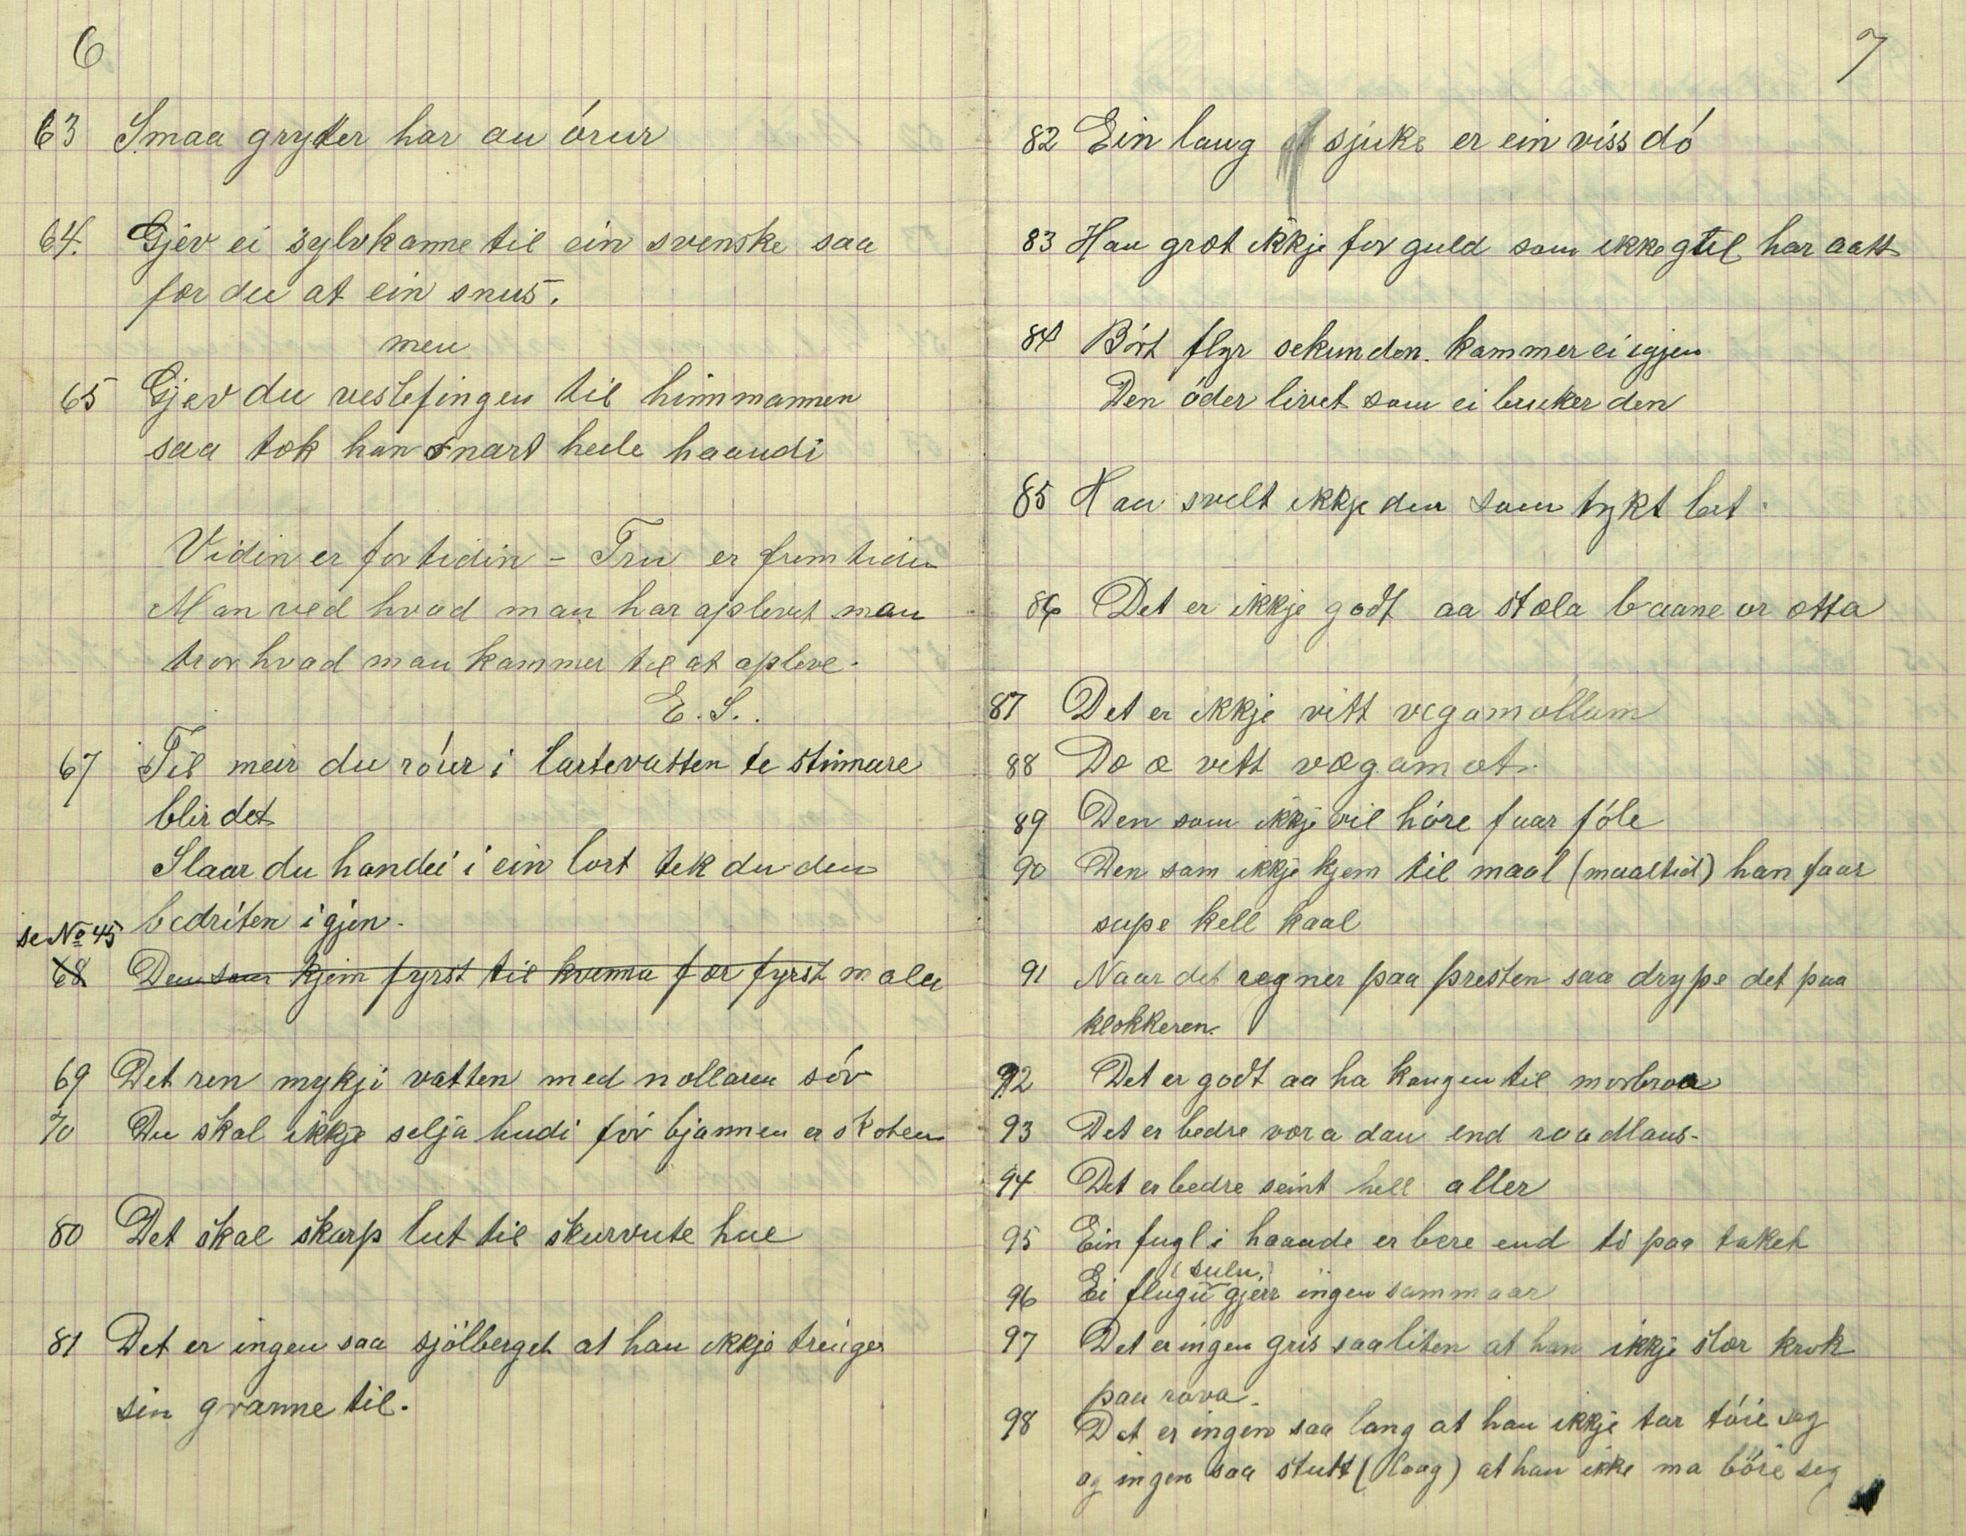 6
63 Smaa gryter har au órur
64. Gjev ei sylvkanne til ein svenske saa
fær du at ein snus.
men
65 Gjev du veslefingen til hinmannen
saa tok han snart heile haandi
Vidin er fortidin - Tru er fremtidin
Man ved hvad man har oplevet man
tror hvad man kommer til at opleve.
E. S.
67 Til meir du róur i lortevatten te stinnare
blir det
Slaar du handei i ein lort tek du den
bedriten igjen.
se No 45
68 Den som kjem fyrst til kvenna fær fyrst mala
69 Det ren mykji vatten med mollaren sóv
70 Du skal ikkje selja hudi fór bjønnen er skoten
80 Det skal skarp lut til skurvute hue
81 Det er ingen saa sjölberget at han ikkje treinger
sin granne til.
7
82 Ein laug sjuke er ein viss dó
83 Han græt ikkje for guld som ikke gul har aatt
84 Bórt flyr sekunden. kommer ei igjen
Den öder livet som ei bruker den
85 Han svelt ikkje den som tykt bet.
86 Det er ikkje godt aa stæla baane or ætta
87 Det er ikkje vitt vegamollom
88 Dæ æ vitt vægamot.
89 Den som ikkje vil hóre faar fóle
90 Den som ikkje kjem til maal (maaltid) han faar
supe kell kaal
91 Naar det regner paa presten saa drype det paa
klokkeren.
92 Det er godt aa ha kongen til morbroa
93 Det er bedre vora dau end raadlaus.
94 Det er bedre seint hell aller
95 Ein fugl i haande er bere end tó paa taket
(sulu)
96 Ei flugu gjerr ingen sommaar
97 Det er ingen gris saa liten at han ikkje slær krok
paa rova.
98 Det er ingen saa lang at han ikkje tar tóie seg
og ingen saa stutt (laag) at han ikke ma bóie seg